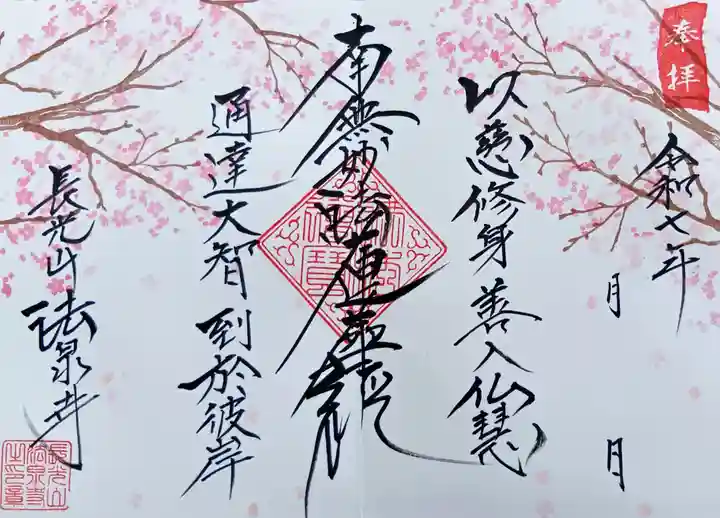 奉拝
令和七年
月
月
以慈修身 善入仏慧
南無妙法蓮華経
通達大智 到於彼岸
長光山 法泉寺
長光山
法泉寺
之印章